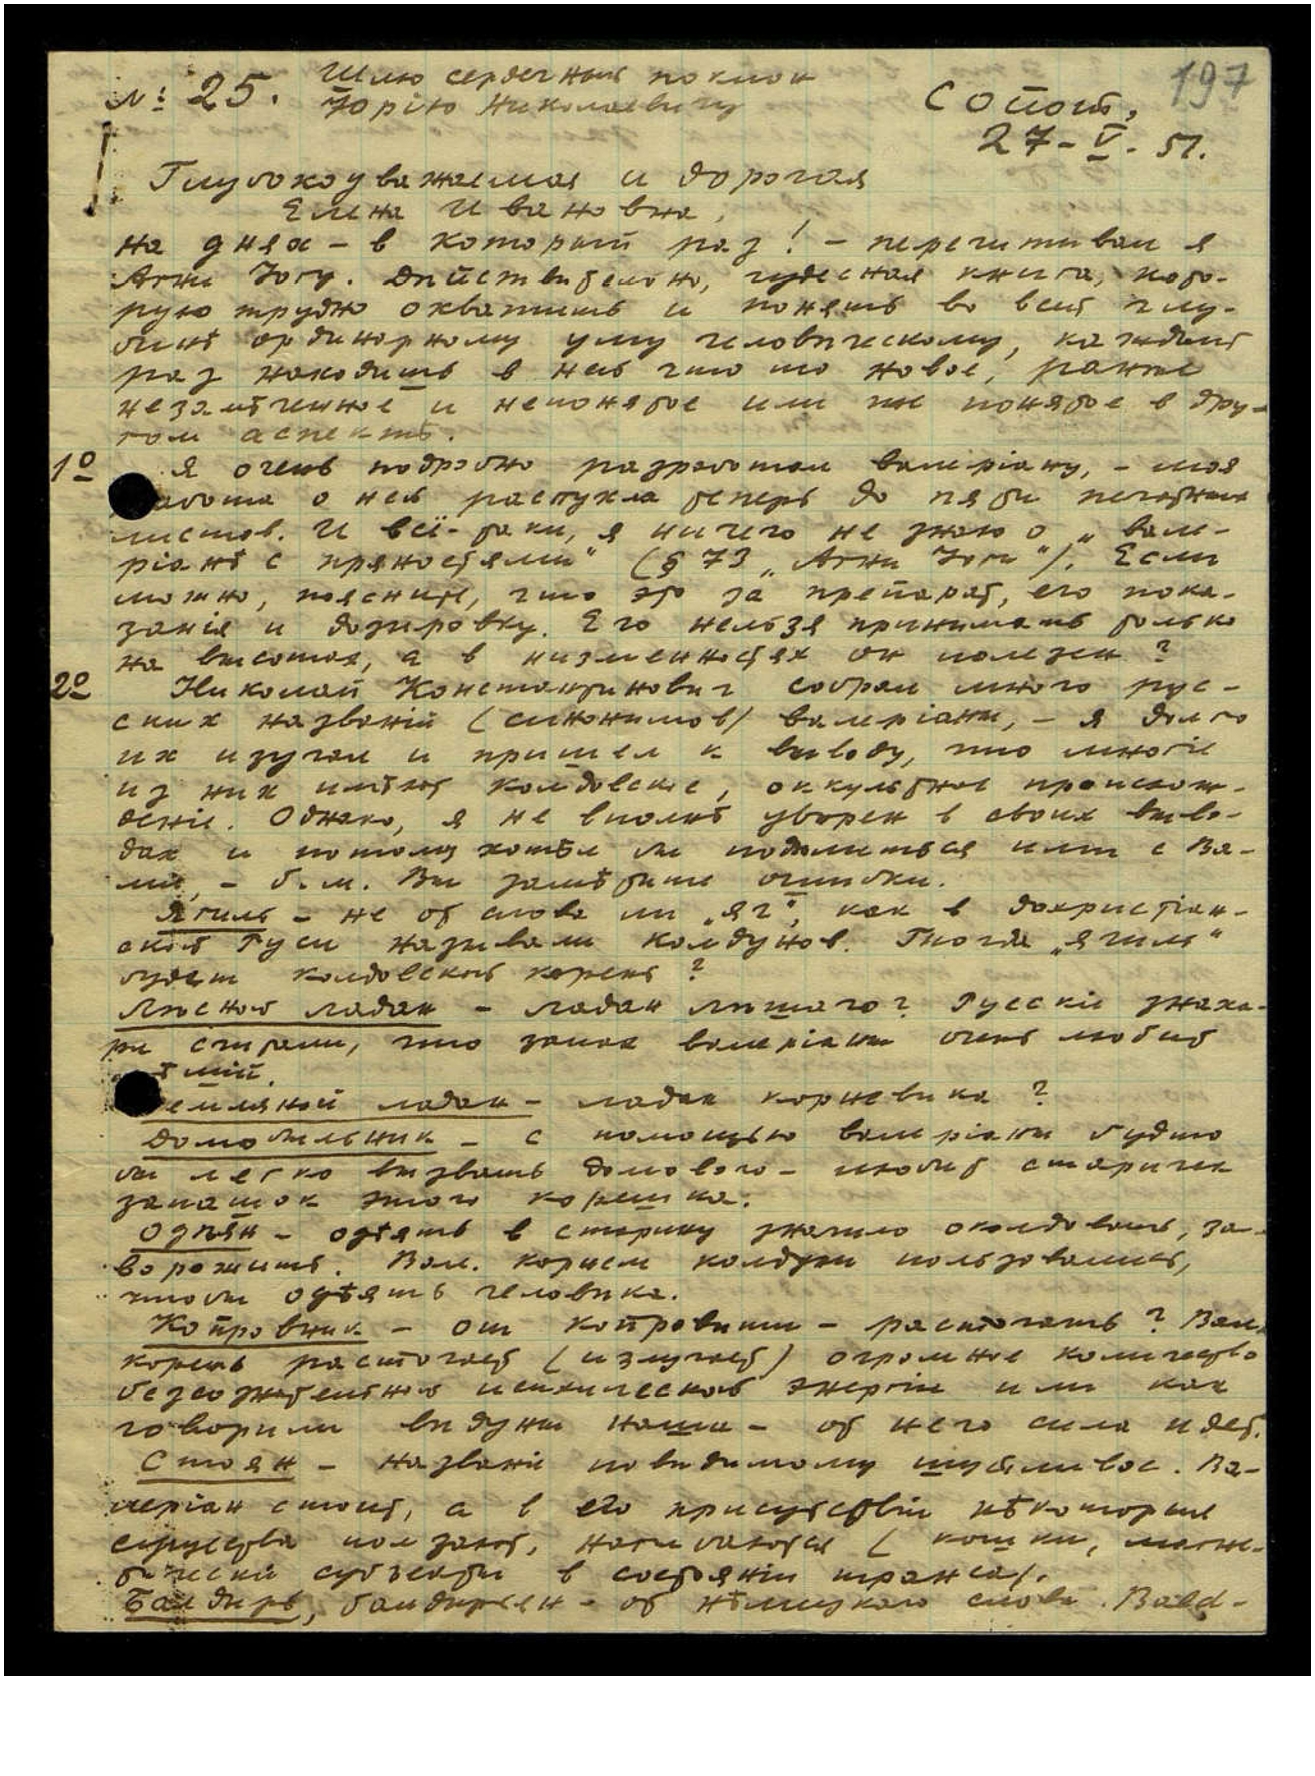 197
№ 25. Шлю сердечный поклон
Юрію Николаевичу
Сопот,
27-V-51.
Глубокоуважаемая и дорогая
Елена Ивановна,
на днях – в который раз! – перечитывал я
Агни Йогу. Действительно, чудесная книга, кото-
рую трудно охватить и понять во всей глу-
бинѣ ординарному уму человѣческому, каждый
раз находишь в ней что то новое, ранѣе
незамѣченное и непонятое или же понятое в дру-
гом аспектѣ.
1º Я очень подробно разработал валеріану, – моя
работа о ней распухла теперь до пяти печатных
листов. И всё-таки, я ничего не знаю о „вале-
ріанѣ с пряностями" (§ 73 „Агни Йоги"). Если
можно, поясните, что это за препарат, его пока-
занія и дозировку. Его нельзя принимать только
на высотах, а в низменностях он полезен?
2º Николай Константинович собрал много рус-
ских названій (синонимов) валеріаны, – я долго
их изучал и пришел к выводу, что многіе
из них имѣют колдовское, оккультное происхож-
деніе. Однако, я не вполнѣ увѣрен в своих выво-
дах и потому хотѣл бы подѣлиться ими с Ва-
ми, – б.м. Вы замѣтите ошибки.
Ягиль – не от слова ли „яг", как в дохристіан-
ской Руси называли колдунов. Тогда „ягиль"
будет колдовской корень?
Лѣсной ладан – ладан лѣшаго? Русскіе знаха-
ри считали, что запах валеріаны очень любит
лѣшій.
Земляной ладан – ладан корневика?
Домобыльник – с помощью валеріаны будто
бы легко вызвать домового – любит старичек
запашок этого корешка.
Одѣян – одѣять в старину значило околдовать, за-
ворожить. Вал. корнем колдуны пользовались,
чтобы одѣять человѣка.
Копровник – от копровить – расточать? Вал.
корень расточает (излучает) огромное количество
безсознательной психической энергіи или как
говорили вѣдуны наши – от него сила идет.
Стоян – названіе повидимому шутливое. Ва-
леріан стоит, а в его присутствіи нѣкоторые
существа ползают, нагибаются (кошки, магне-
тическіе субъекты в состояніи транса).
Балдырь, балдырьян – от нѣмецкаго слова Bald-